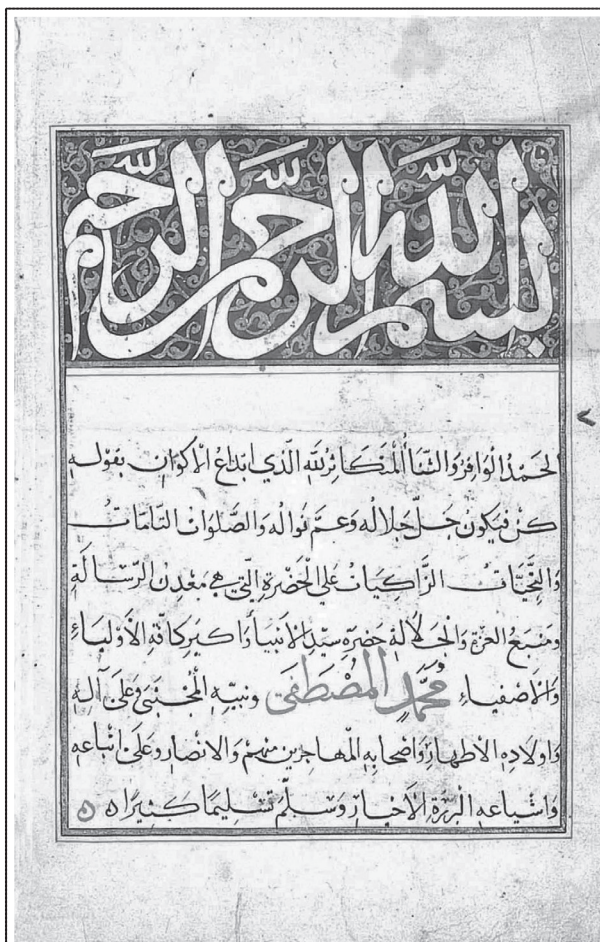 بسم الله الرحمن الرحيم
الحَمْدُ الْوَافِرُ وَالثَّنَاءُ الْمُتَكَاثِرُ لِلَّهِ الَّذِي ابْدَاعُ الْاَكْوَانِ بِقَوْلِهِ
كُنْ فَيَكُونُ جَلَّ جَلَالُهُ وَعَمَّ نَوَالُهُ وَالصَّلَوَاتُ التَّامَّاتُ
وَالتَّحِيَّاتُ الزَّاكِيَاتُ عَلَى الْحَضْرَةِ الَّتِي هِيَ مَعْدِنُ الرِّسَالَةِ
وَمَنْبَعُ الْعِزَّةِ وَالْجَلَالَةِ حَضْرَةِ سَيِّدِ الْاَنْبِيَاءِ كَافَّةِ الْاَوْلِيَاءِ
وَالْاَصْفِيَاءِ مُحَمَّدٍ الْمُصْطَفَى وَنَبِيِّهِ الْمُجْتَبَى وَعَلَى آلِهِ
وَاَوْلَادِهِ الْاَطْهَارِ وَاَصْحَابِهِ الْمُهَاجِرِينَ مِنْهُمْ وَالْاَنْصَارِ وَعَلَى اَتْبَاعِهِ
وَاَشْيَاعِهِ الْبَرَرَةِ الْاَخْيَارِ وَسَلَّمَ تَسْلِيمًا كَثِيرًا